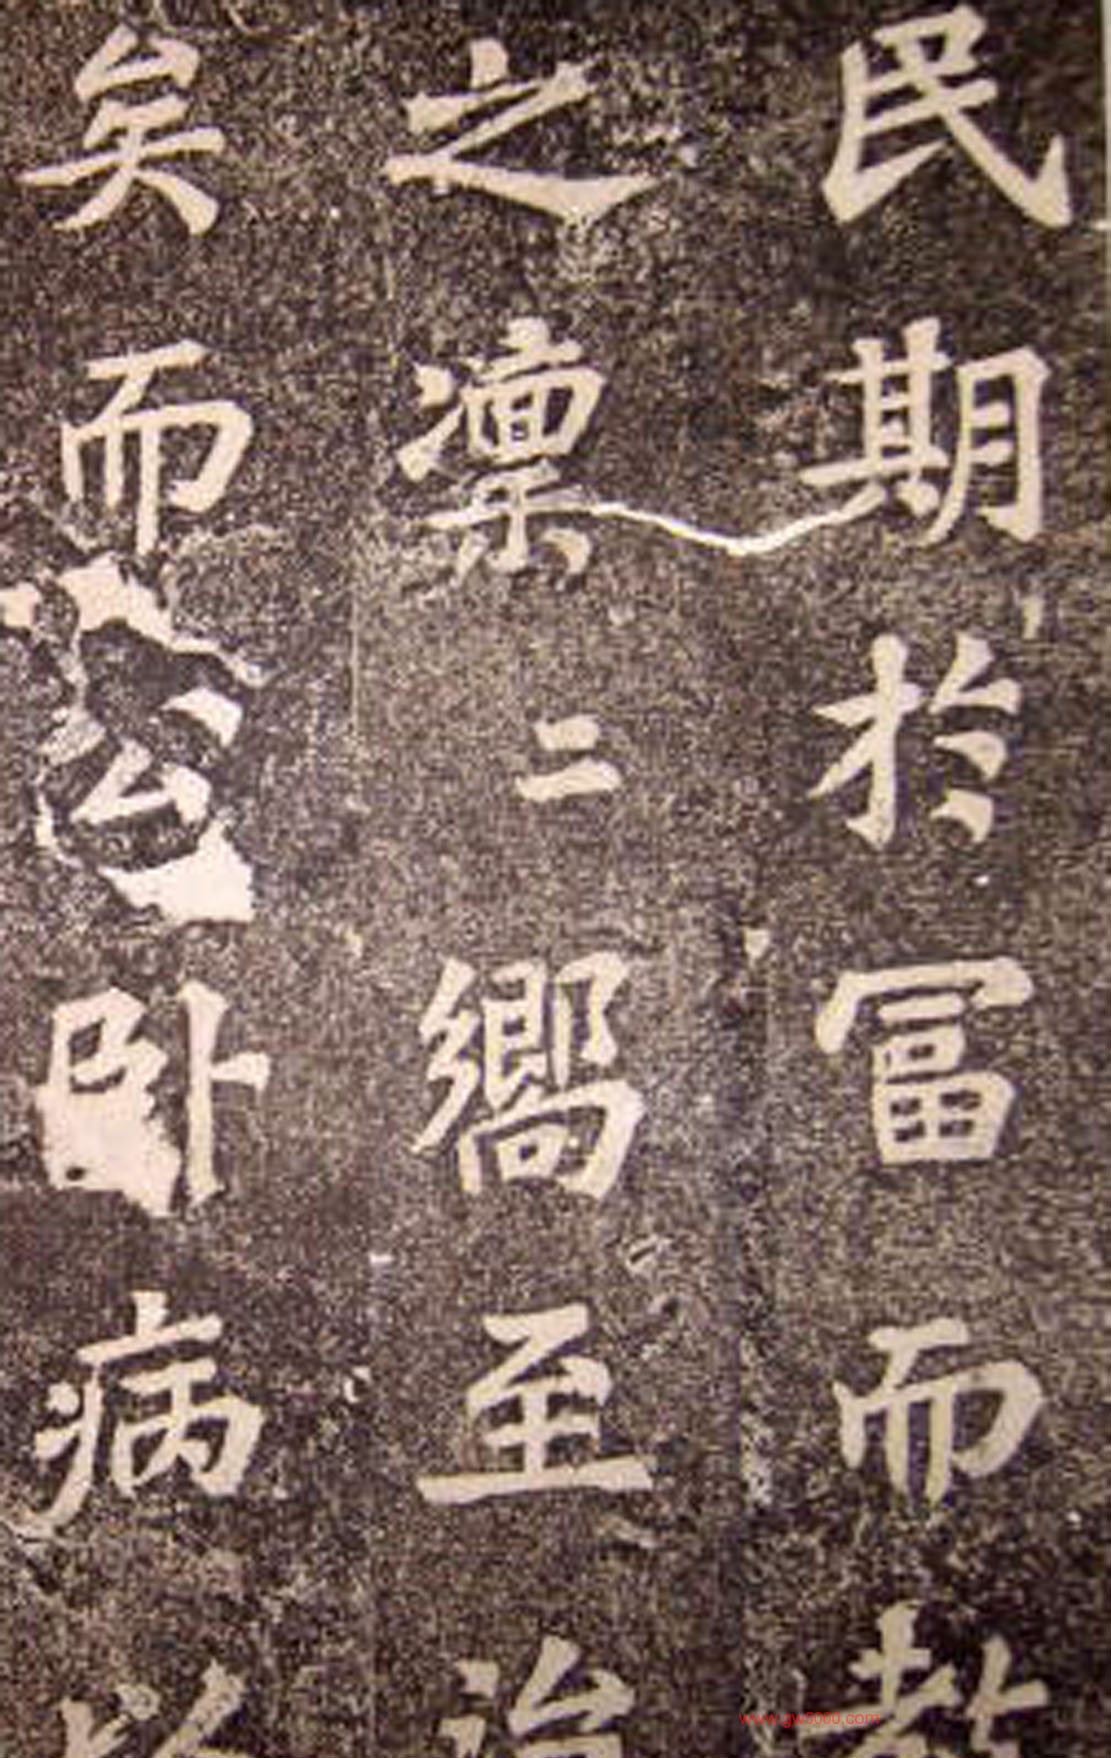 民期於冨而教
之凛二嚮至治
矣而公卧病以
www.gw5000.com